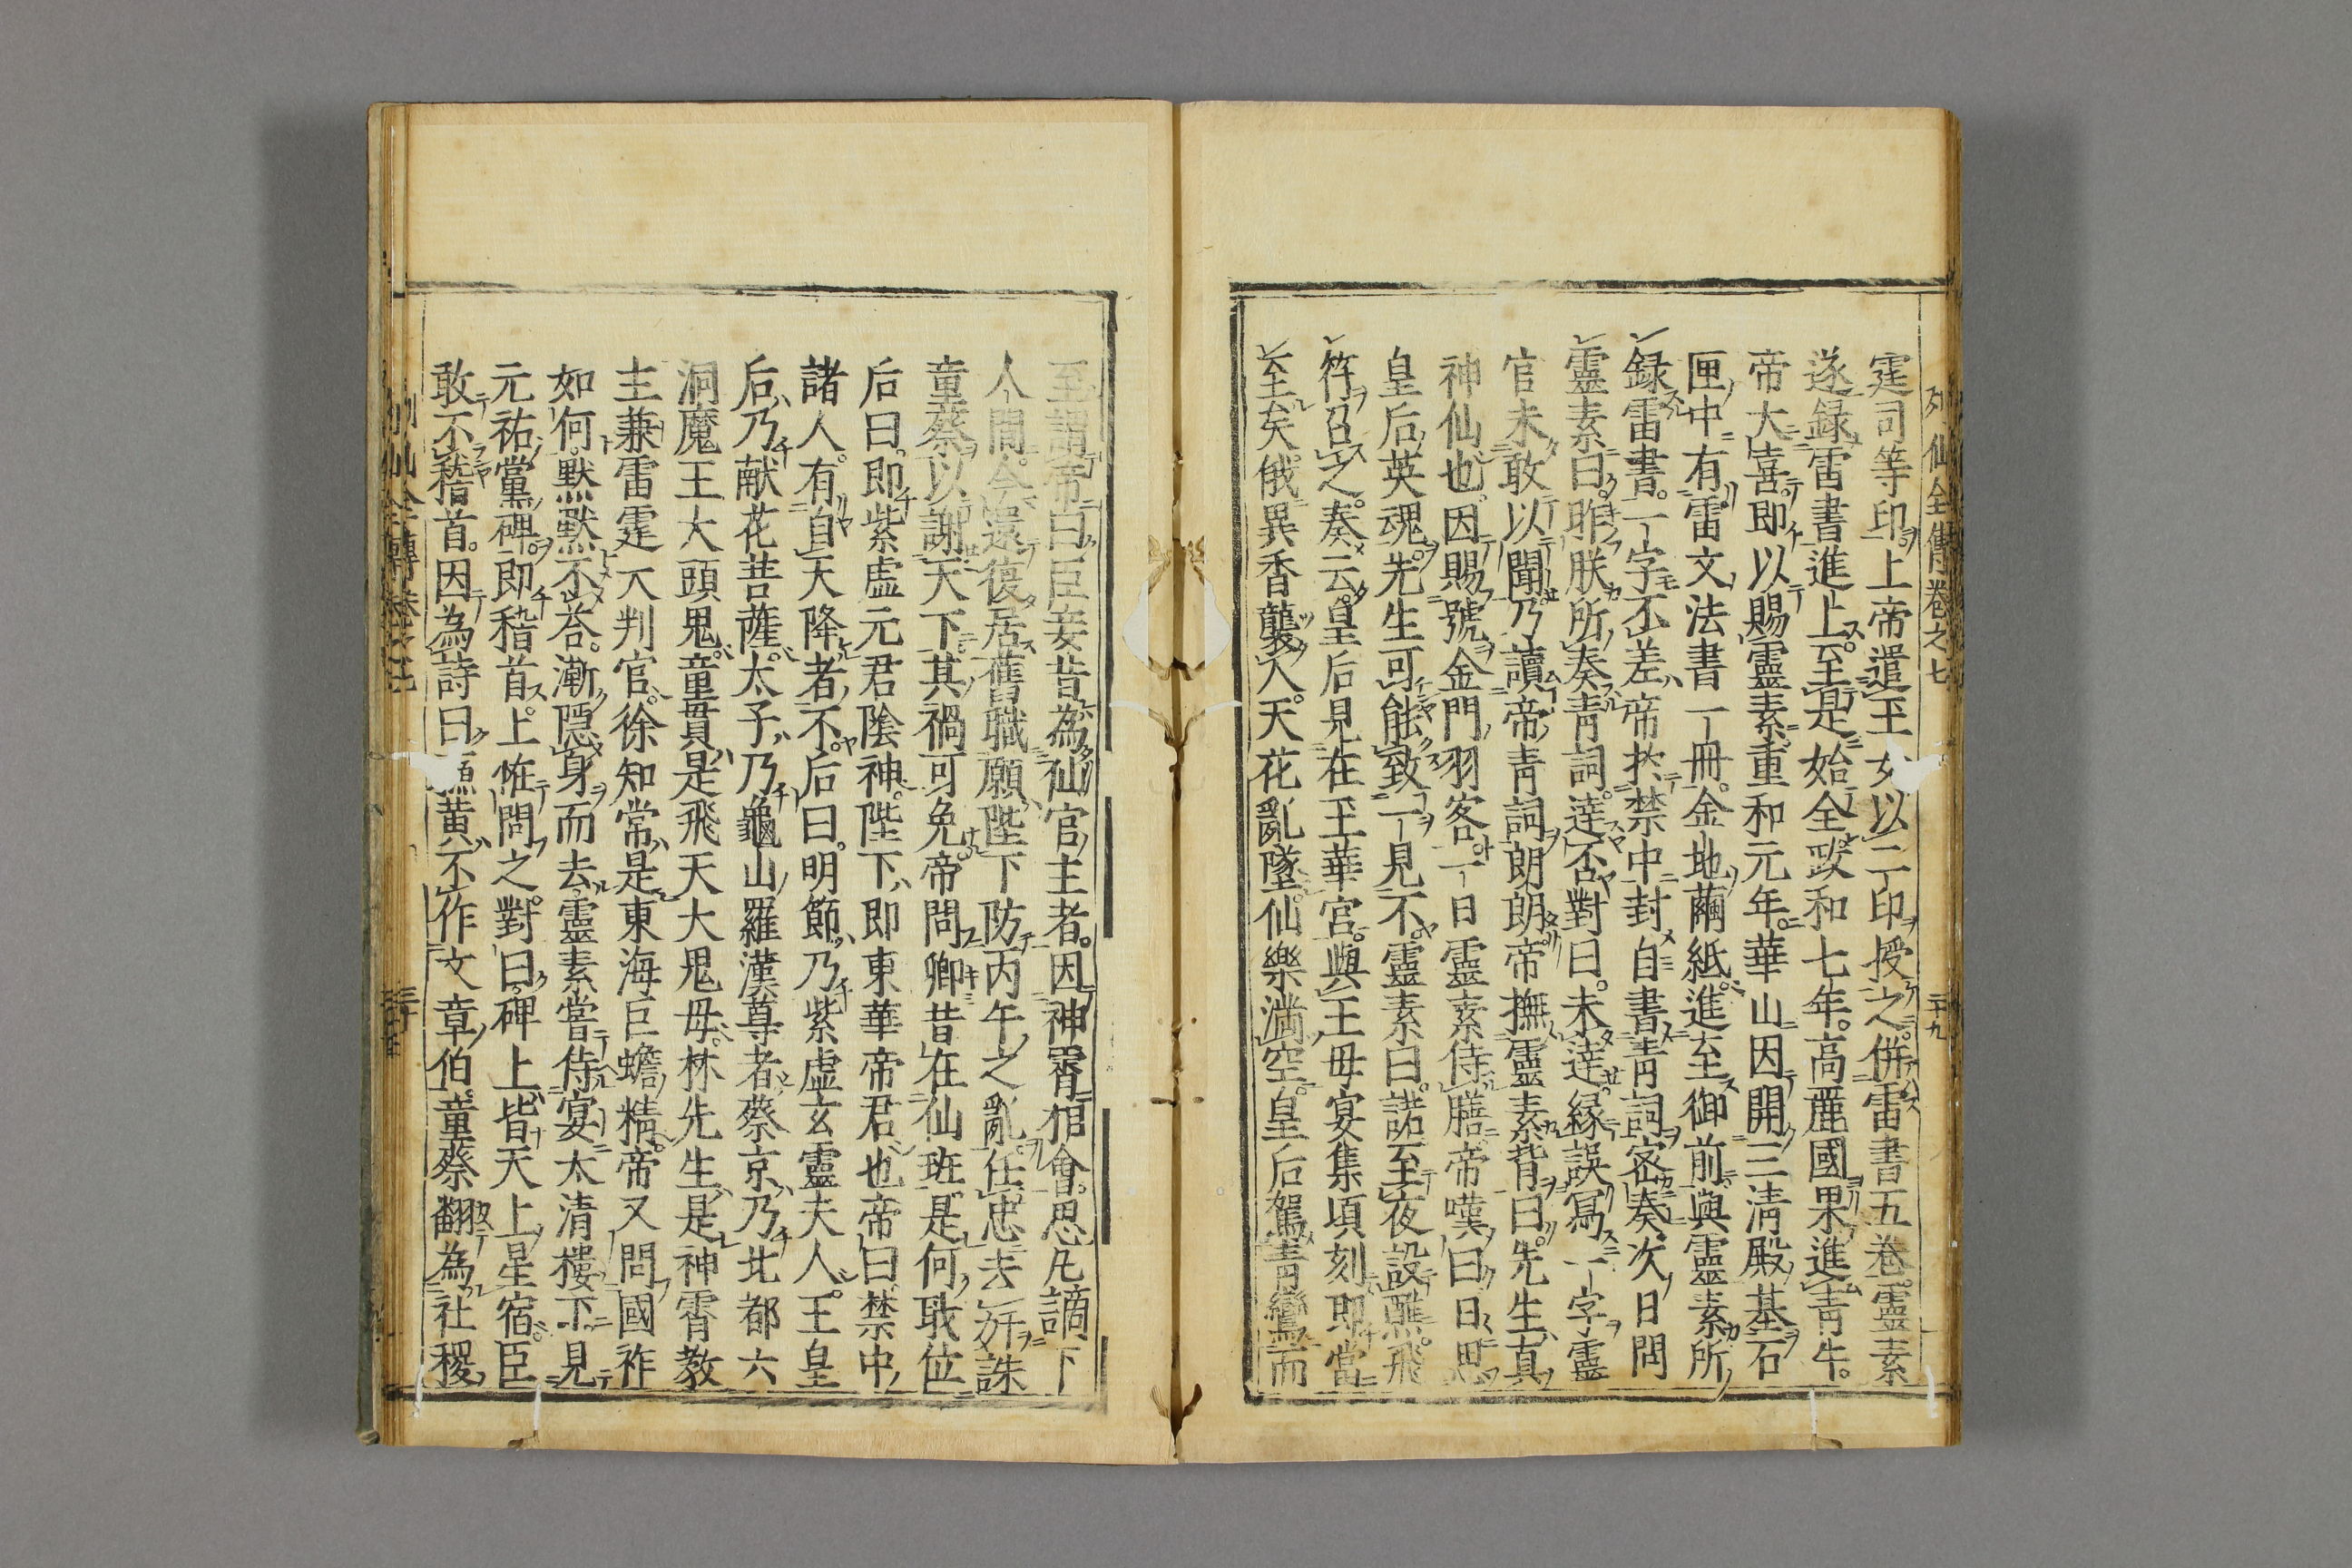 列仙全傳卷之七 二十九
霆司等印上帝遣玉女以二印授之。併雷書五卷。靈素
遂録雷書進上。至是始全政和七年。高麗國果進青牛。
帝大喜。即以賜靈素。重和元年。華山因開三清殿基石
匣中有雷文法書一冊。金地繭紙。進至御前。與靈素所
録雷書。一字不差。帝於禁中封。自書青詞密奏。次日問
靈素曰。昨朕所奏青詞。達否。對曰。未達。緣誤寫一字。靈
官未敢以聞。乃讀帝青詞朗朗。帝撫靈素背曰。先生真
神仙也。因賜號金門羽客。一日靈素侍膳。帝嘆曰。思
皇后英魂。先生可能致一見不。靈素曰。諾。至夜設醮。飛
符召之。奏云。皇后見在玉華宮。與王母宴集。頃刻即當
至矣。俄異香襲人。天花亂墜。仙樂滿空。皇后駕青鸞而
至謂帝曰。臣妾昔為仙官主者。因神霄相會。思凡謫下
人間。今還復居舊職。願陛下防丙午之亂。任忠去奸誅
童蔡以謝天下。其禍可免。帝問卿昔在仙班是何職位
后曰。即紫虛元君陰神。陛下即東華帝君也。帝曰。禁中
諸人。有自天降者不。后曰。明節乃紫虛玄靈夫人。王皇
后乃献花菩薩。太子乃龜山羅漢尊者。蔡京乃北都六
洞魔王大頭鬼。童貫是飛天大鬼母。林先生是神霄教
主兼雷霆大判官。徐知常是東海巨蟾精。帝又問國祚
如何。默默不荅。漸隱身而去。靈素嘗侍宴太清樓下。見
元祐黨碑。即稽首。上恠問之。對曰。碑上皆天上星宿。臣
敢不稽首。因為詩曰。黄不作文章伯。童蔡翻為社稷
列仙全傳卷之七